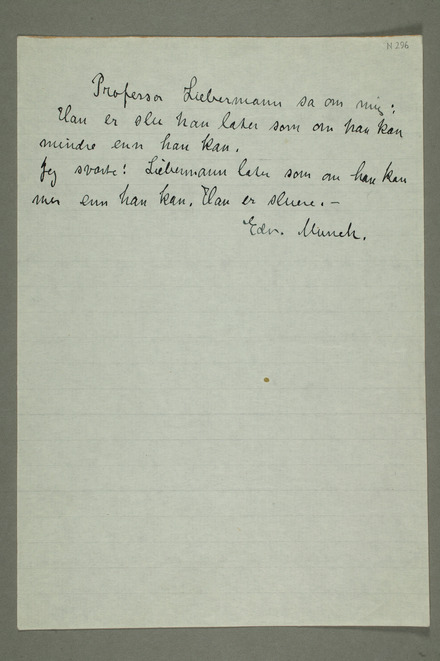 N 296
Professor Liebermann sa om mig:
Han er slu han later som om han kan
mindre enn han kan.
Jeg svarte: Liebermann later som om han kan
mer enn han kan. Han er sluere. –
Edv. Munch.